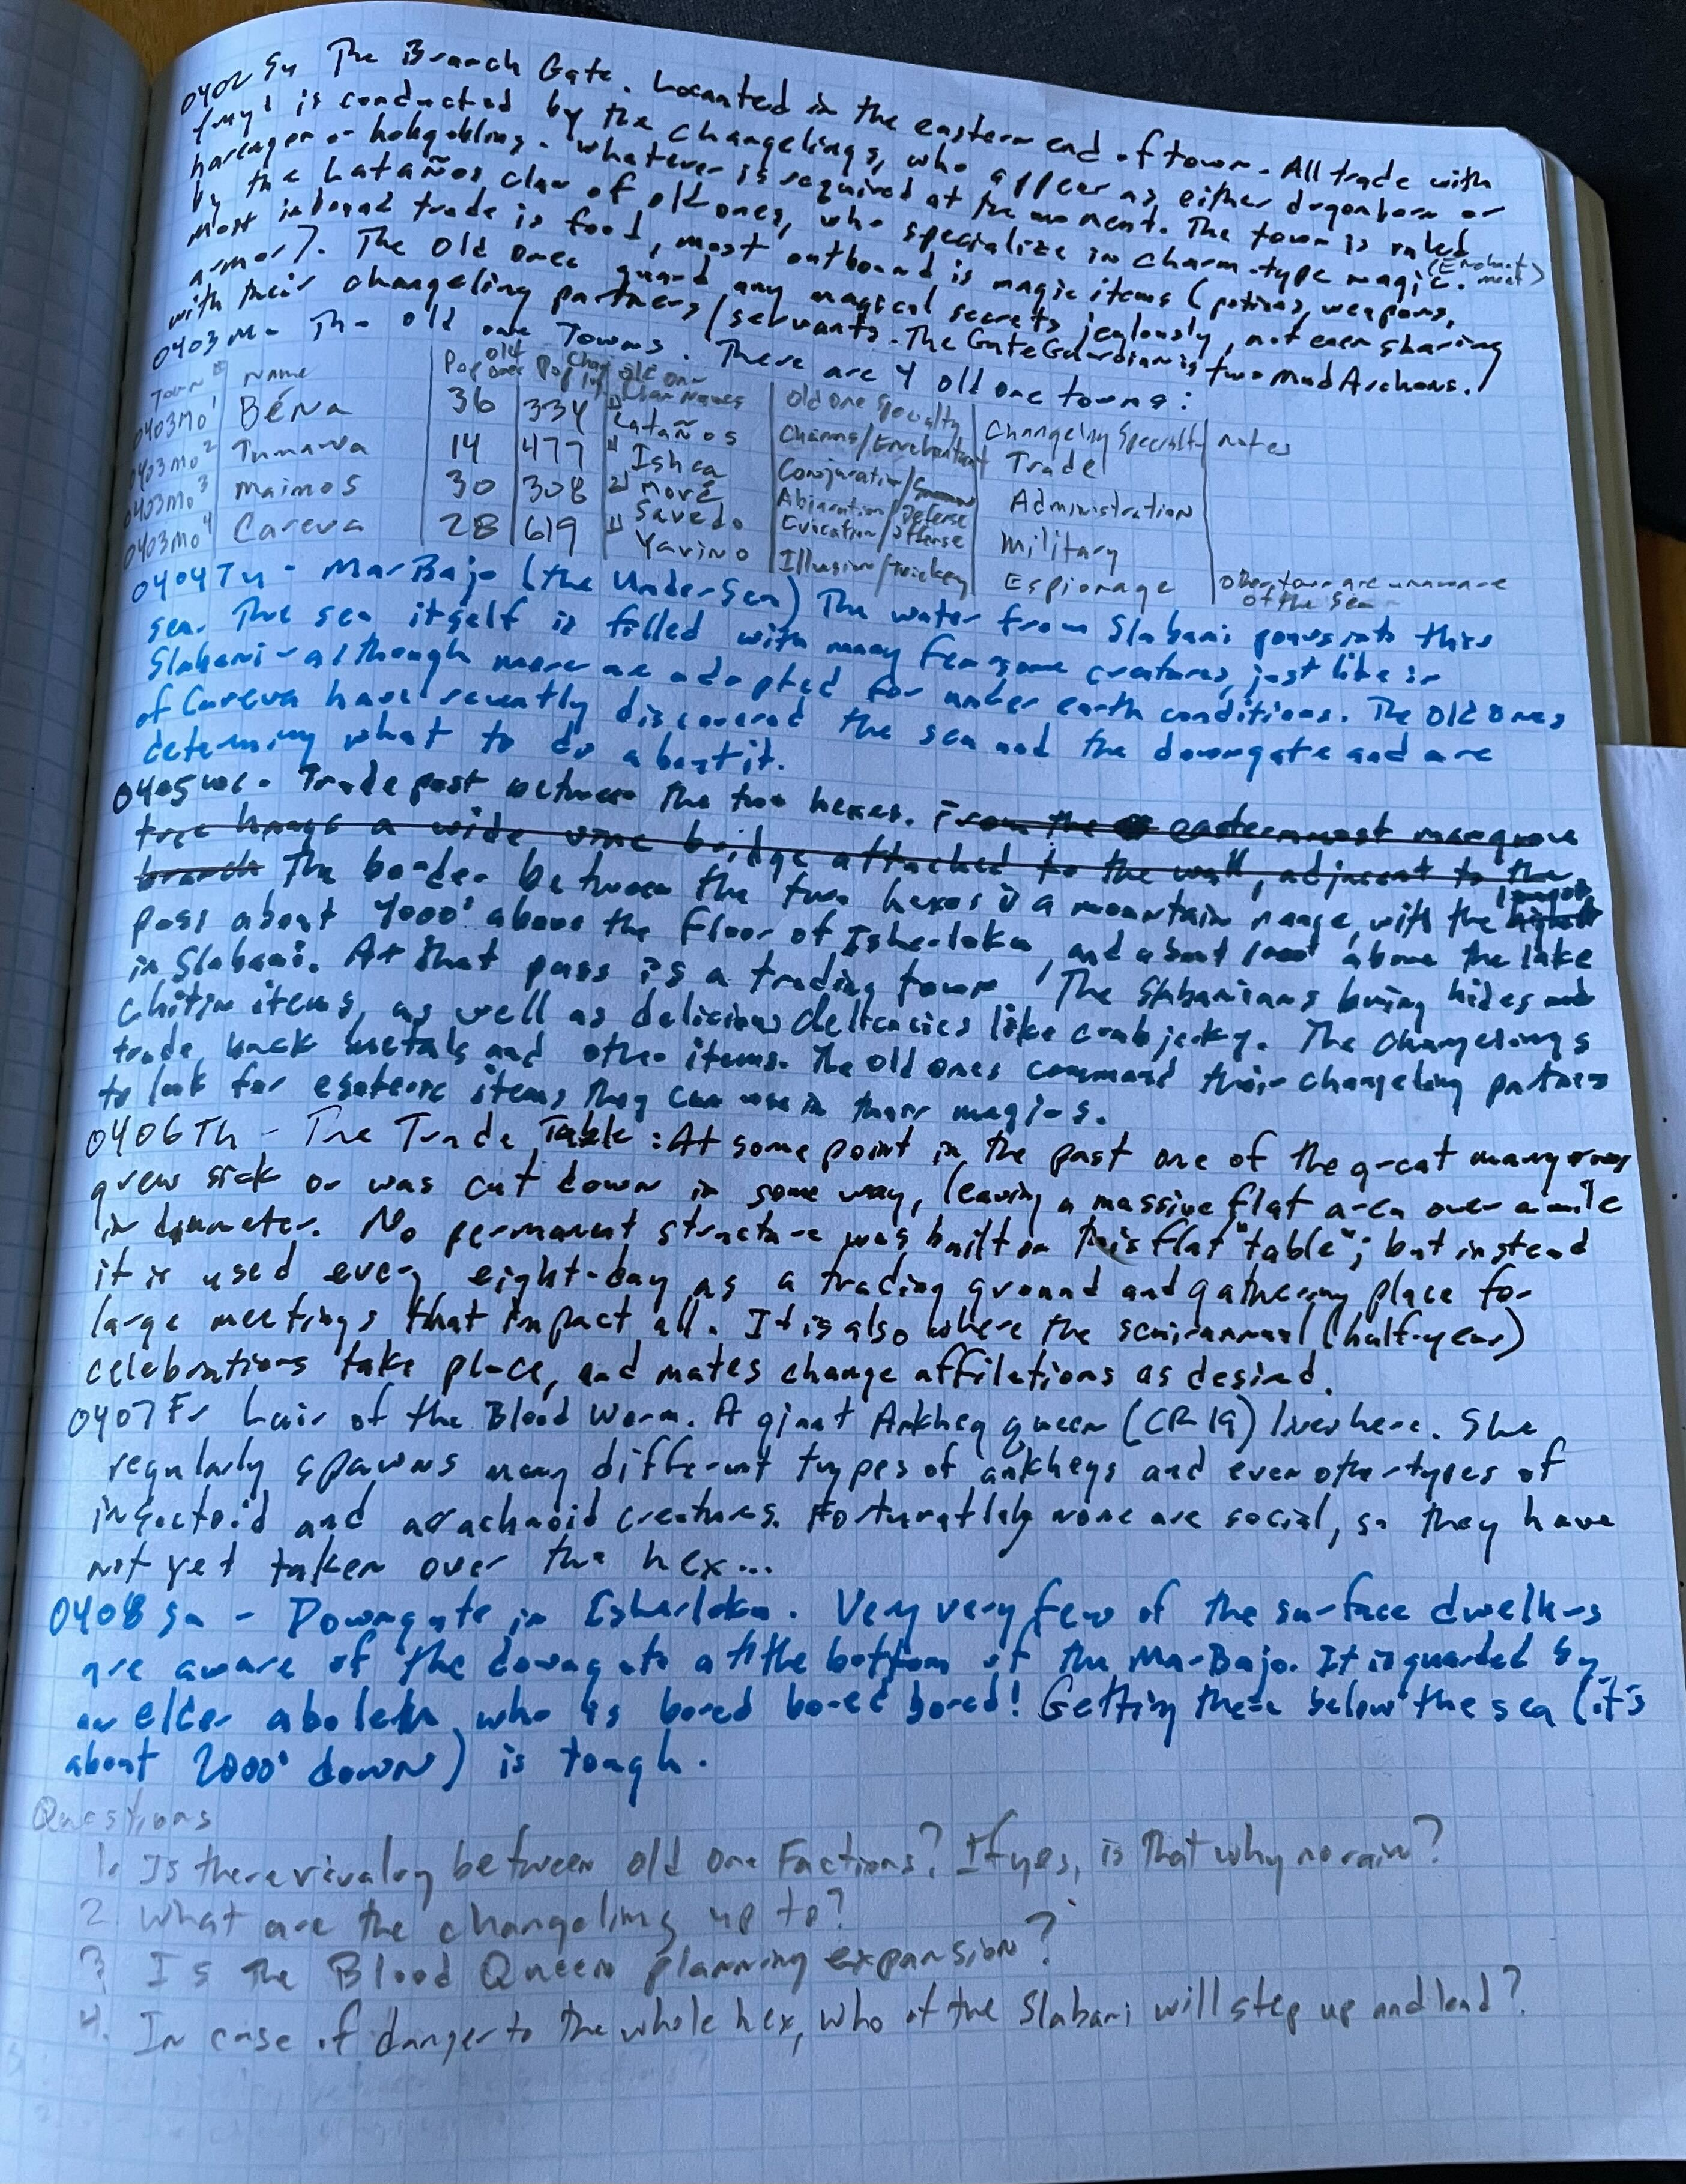 0402 Su The Branch Gate. Locanted in the eastern end of town. All trade with
is conducted by the changelings, who appear as either dragonborn or
harengon or hobgoblins. whatever is required at the moment. The town is ruled
by the Lataños clan of old ones, who specialize in charm-type magic. (Enchantment)
Most inbound trade is food, most outbound is magic items (potions, weapons,
armor). The Old Ones guard any magical secrets jealously, not even sharing
with their changeling partners/servants. The Gate Guardian is two Mud Archons.
0403 Mo - The old one Towns. There are 4 old one towns:
Town # Name Pop old one Pop Chang ling old one Clan Names Old One Specialty Changeling Specialty notes
0403Mo1 Béna 36 334 Lataños Charms/Enchantment Trade
0403Mo2 Tumava 14 477 Ishca Conjuration/ Administration
0403Mo3 Maimos 30 308 Moré Abjuration/Defense
Savedo Evocation/Offense Military
0403Mo4 Careva 28 619 Yavino Illusion/Trickey Espionage Other towns are unaware of the Sea
0404Tu - Mar Bajo (the UnderSea) The water from Slabani pours into this
sea. The sea itself is filled with many fearsome creatures, just like in
Slabani - although more are adapted for under earth conditions. The Old Ones
of Careva have recently discovered the sea and the downgate and are
determing what to do about it.
0405 We - Trade post between the two hexes. From the easternmost mangrove
tree hangs a wide vine bridge attached to the wall, adjacent to the
branch The border between the two hexes is a mountain range, with the longest
pass about 4000' above the floor of Isherloka, and about 1000' above the lake
in Slabani. At that pass is a trading town. The Slabanians bring hides and
chitin items, as well as delicious delicacies like crab jerky. The changelings
trade back metals and other items. The old ones command their changeling partners
to look for esoteric items they can use in their magics.
0406Th - The Trade Table: At some point in the past one of the great mangroves
grew sick or was cut down in some way, leaving a massive flat area over a mile
in diameter. No permanent structure was built on this flat "table"; but instead
it is used every eight-day as a trading ground and gathering place for
large meetings that impact all. It is also where the semiannual (half-year)
celebrations take place, and mates change affiliations as desired.
0407 Fr Lair of the Blood Worm. A giant Ankheg queen (CR 19) lives here. She
regularly spawns many different types of ankhegs and even other types of
insectoid and arachnoid creatures. Fortunatlely none are social, so they have
not yet taken over the hex...
0408 Sa - Downgate in Isherloka. Very very few of the surface dwellers
are aware of the downgate at the bottom of the Mar Bajo. It is guarded by
an elder aboleth, who is bored bored bored! Getting there below the sea (it's
about 2000' down) is tough.
Questions
1. Is there rivalry between old one Factions? If yes, is that why no rain?
2. What are the changelings up to?
3 Is the Blood Queen planning expansion?
4. In case of danger to the whole hex, who of the Slabani will step up and lead?